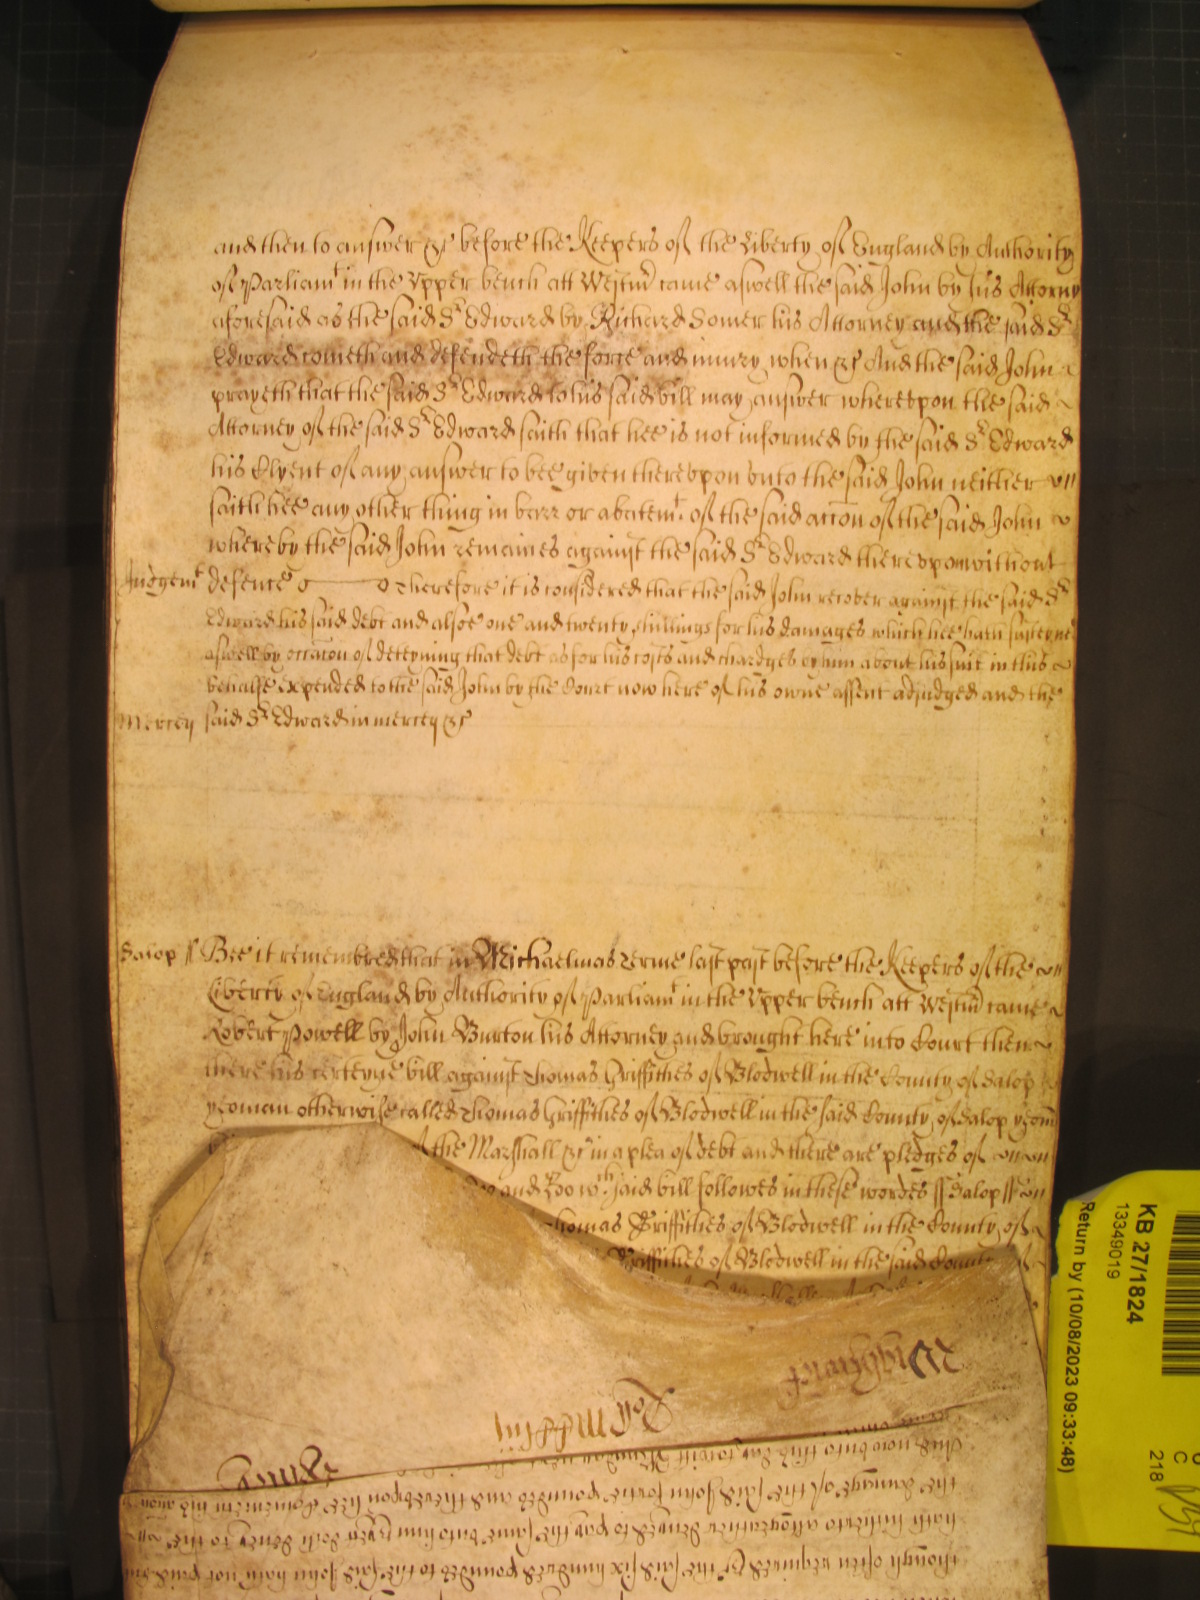 and then to answer &c before the Keepers of the Liberty of England by Authority
of Parliamt in the Upper bench att Westm came aswell the said John by his Attorny
aforesaid as the said Sr Edward by Richard Somer his Attorney and the said Sr
Edward cometh and defendeth the force and iniury when &c And the said John
prayeth that the said Sr Edward to his said bill may answer wherevpon the said
Attorney of the said Sr Edward saith that hee is not informed by the said Sr Edward
his Clyent of any answer to bee given therevpon vnto the said John neither
saith hee any other thing in barr or abatemt of the said accon of the said John
whereby the said John remaines against the said Sr Edward therevpon without
Judgemt defence Therefore it is considered that the said John recover against the said Sr
Edward his said debt and alsoe one and twenty shillings for his damages which hee hath susteyned
aswell by occacon of deteyning that debt as for his costs and chardges by him about his suit in this
behalfe expended to the said John by the Court now here of his owne assent adjudged and the
Mercey said Sr Edward in mercey &c
Salop ss Bee it remembred that in Michaelmas terme last past before the Keepers of the
Liberty of England by Authority of Parliamt in the Upper bench att Westm came
Robert Powell by John Burton his Attorney and brought here into Court then
there his certeyne bill against Thomas Griffithes of Blodwell in the County of Salop
yeoman otherwise called Thomas Griffithes of Blodwell in the said County of Salop yeom
of the Marshall &c in a plea of debt and there are pledges of
and Roo wch said bill followes in these wordes ss Salop ss
Thomas Griffithes of Blodwell in the County of
Griffithes of Blodwell in the said County
the damage of the said John fortie poundes and therevpon hee
hath hitherto altogeather denyed to pay the same vnto him &c
though often required &c the said six hundred poundes to the said John hath not paid
KB 27/1824
13349019
Return by (10/08/2023 09:33:48)
C
218